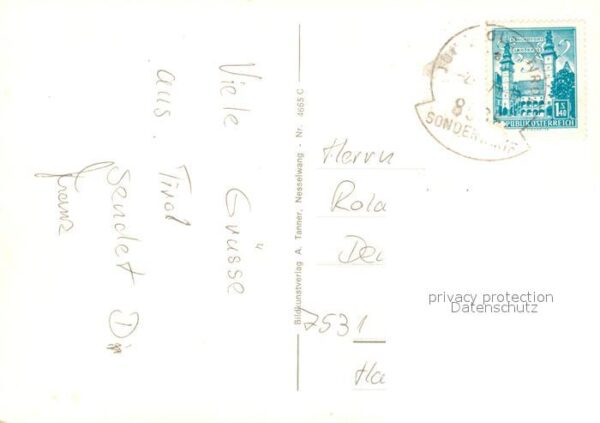 Viele Grüsse
aus Tirol
sendet Dir
Franz
Bildkunstverlag A. Tanner, Nesselwang - Nr. 4665 C
REPUBLIK ÖSTERREICH
1.40
S
SONDER
Herrn
Rola
De
7531
Ha
privacy protection
Datenschutz